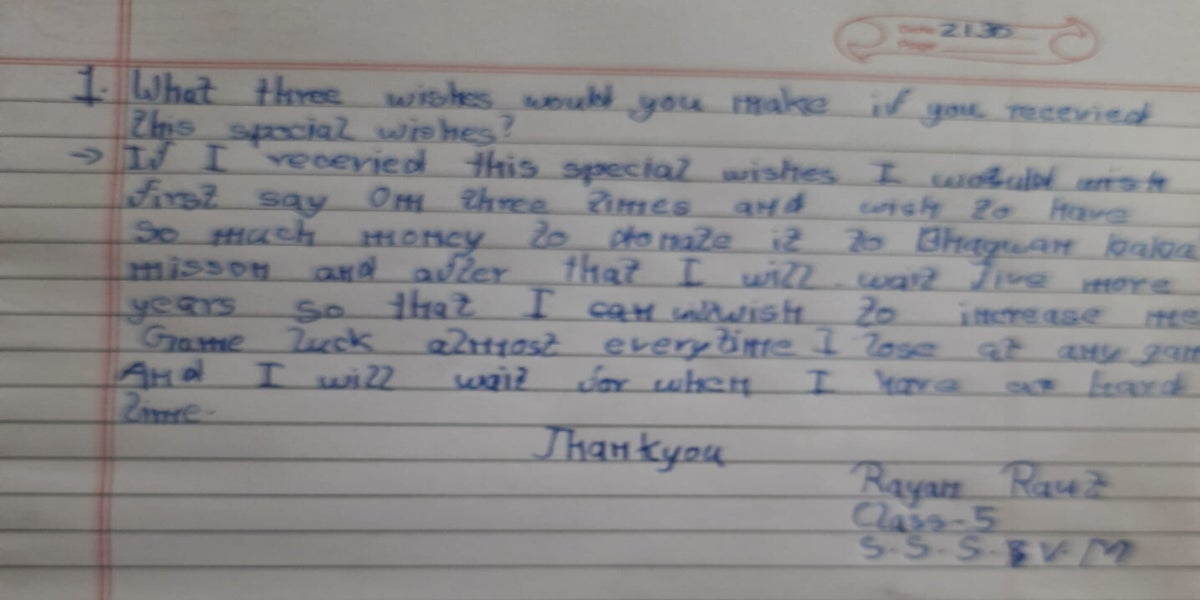 Date 2130
Page
1. What three wishes would you make if you recevied
this special wishes?
→ If I recevied this special wishes I would wish
first say Om three times and wish to have
So much money to donate it to Bhagwan baba
misson and after that I will wait five more
years so that I can wish to increase me
Game luck almost everytime I lose at any gam
And I will wait for when I have a hard
time.
Thankyou
Rayan Raut
Class-5
S.S.S.V.M